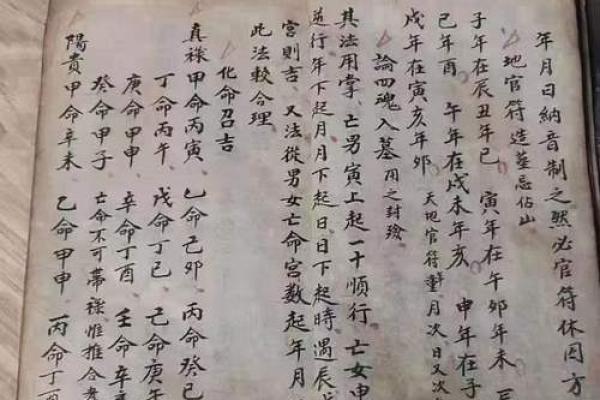 年月日納音制之然必官符休囚方
地官符造墓忌佔山
子年在辰 丑年巳 寅年在午 卯年未
巳年酉 午年在戌 未年亥 申年在子
戌年在寅 亥年卯 天地官符重 月次日又次
論四魂入墓 用之封殮
其法用掌、亡男寅上起一十順行、亡女申
逆行年下起月月下起日、日下起時、遇辰
宮則吉、又法從男女亡命宮数起年月
此法較合理
化命召吉
真祿甲命丙寅 乙命己卯、丙命癸巳
丁命丙午、戊命丁巳、己命庚午
庚命甲申、辛命丁酉、壬命辛
癸命甲子 亡命不可帶祿惟推合
陽貴甲命辛未 乙命甲申 丙命丁酉